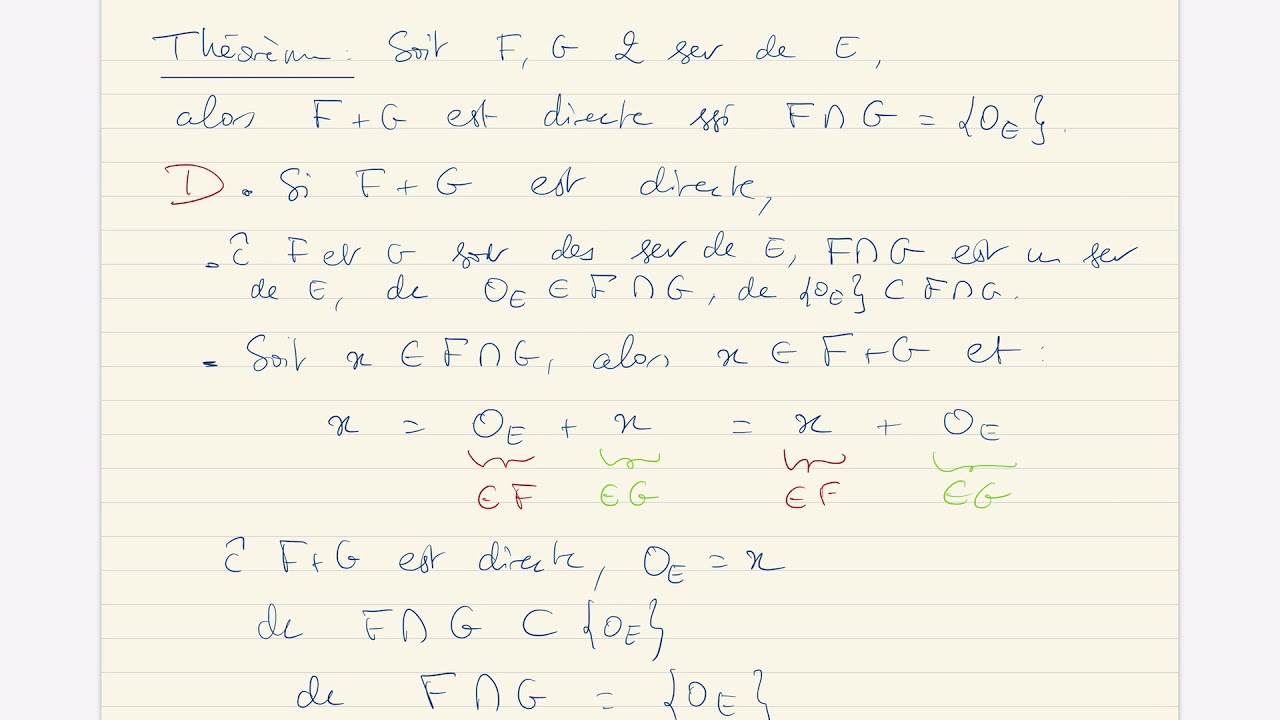 Théorème : Soit F, G 2 sev de E,
alors F+G est directe ssi F∩G = {0_E}.
D • Si F+G est directe,
- ĉ F et G sont des sev de E, F∩G est un sev
de E, dc 0_E ∈ F∩G, dc {0_E} ⊂ F∩G.
- Soit x ∈ F∩G, alors x ∈ F+G et :
x = 0_E + x = x + 0_E
∈F ∈G ∈F ∈G
ĉ F+G est directe, 0_E = x
dc F∩G ⊂ {0_E}
dc F∩G = {0_E}